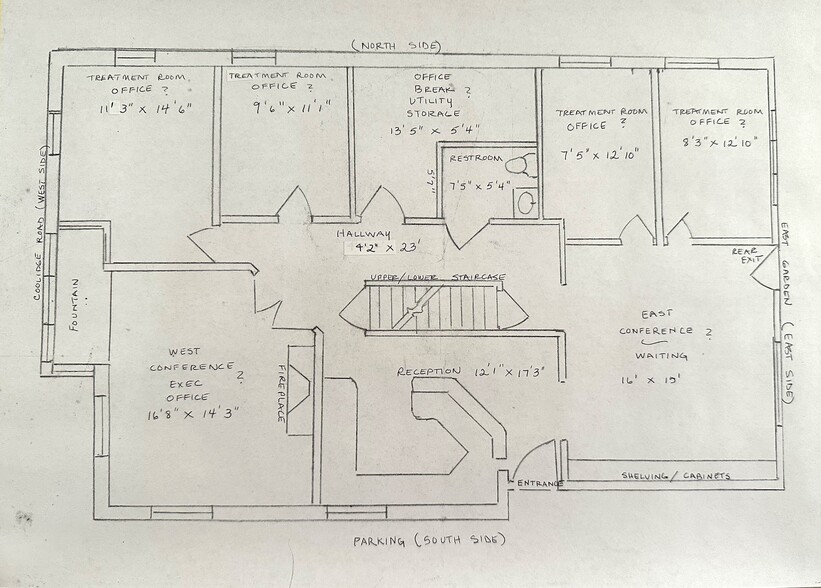 (NORTH SIDE)
TREATMENT ROOM
OFFICE ?
11' 3" X 14'6"
TREATMENT ROOM
OFFICE ?
9'6" X 11'1"
OFFICE
BREAK ?
UTILITY
STORAGE
13' 5" X 5'4"
TREATMENT ROOM
OFFICE ?
7'5" X 12'10"
TREATMENT ROOM
OFFICE ?
8'3" X 12'10"
RESTROOM
7'5" X 5'4"
5'7"
COOLIDGE ROAD (WEST SIDE)
HALLWAY
4'2" X 23'
EAST GARDEN (EAST SIDE)
REAR
EXIT
UPPER/LOWER STAIRCASE
FOUNTAIN
EAST
CONFERENCE ?
WAITING
16' X 19'
WEST
CONFERENCE ?
EXEC
OFFICE
16'8" X 14'3"
FIREPLACE
RECEPTION 12'1" X 17'3"
SHELVING/CABINETS
ENTRANCE
PARKING (SOUTH SIDE)